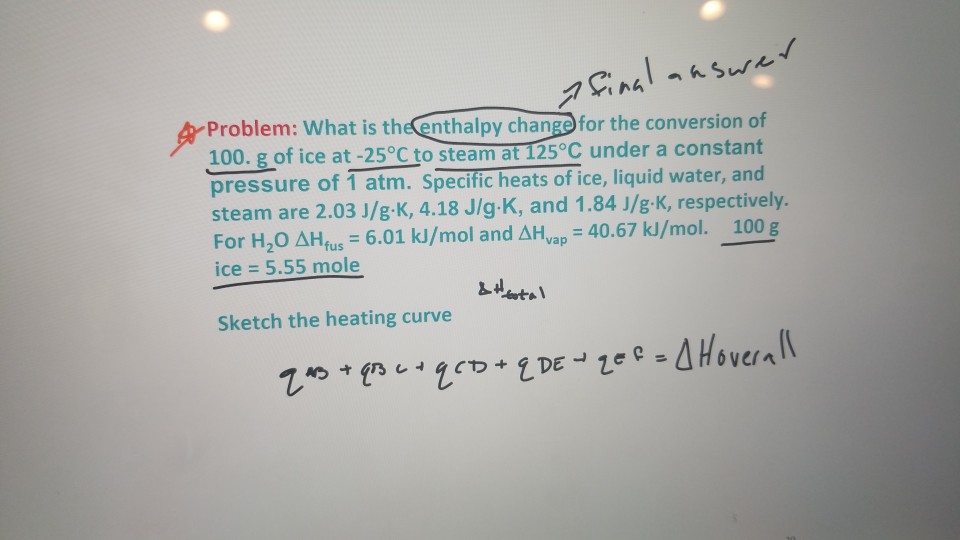 → final answer
Problem: What is the enthalpy change for the conversion of
100. g of ice at -25°C to steam at 125°C under a constant
pressure of 1 atm. Specific heats of ice, liquid water, and
steam are 2.03 J/g·K, 4.18 J/g·K, and 1.84 J/g·K, respectively.
For H₂O ΔHfus = 6.01 kJ/mol and ΔHvap = 40.67 kJ/mol. 100 g
ice = 5.55 mole
ΔHtotal
Sketch the heating curve
qAB + qBC + qCD + qDE + qEF = ΔHoverall